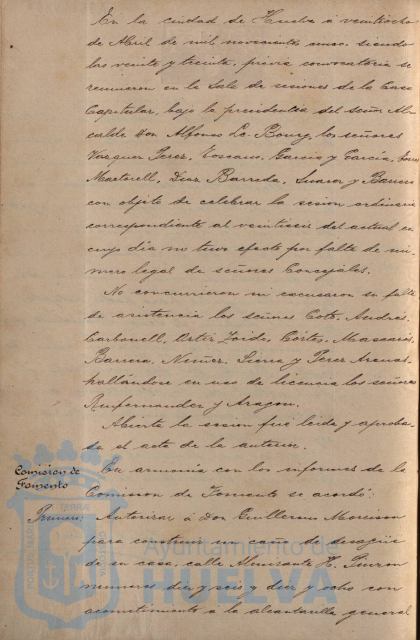 En la ciudad de Huelva á veintiocho
de Abril de mil novecientos cinco, siendo
las veinte y treinta, prévia convocatoria se
reunieron en la Sala de sesiones de la Casa
Capitular, bajo la presidencia del señor Al-
calde Don Alfonso Le-Bourg, los señores
Vazquez Perez, Toscano, Garcia y Garcia,
Martorell, Diaz Barreda, Suarez y
con objeto de celebrar la sesion ordinaria
correspondiente al veintiseis del actual en
cuyo dia no tuvo efecto por falta de nú-
mero legal de señores Concejales.
No concurrieron ni excusaron su falta
de asistencia los señores Coto,
Carbonell, Ortiz Cortés,
Barrera, Nuñez, Sierra y Perez
hallándose en uso de licencia los señores
y Aragon.
Abierta la sesion fué leida y aproba-
da el acta de la anterior.
Comision de
Fomento
En armonia con los informes de la
Comision de Fomento se acordó:
Primero; Autorizar á Don Guillermo
para construir un caño de desagüe
de su casa, calle Almirante H. Pinzon
números diez y seis y diez y ocho con
acometimiento á la alcantarilla general
Ayuntamiento de
HUELVA